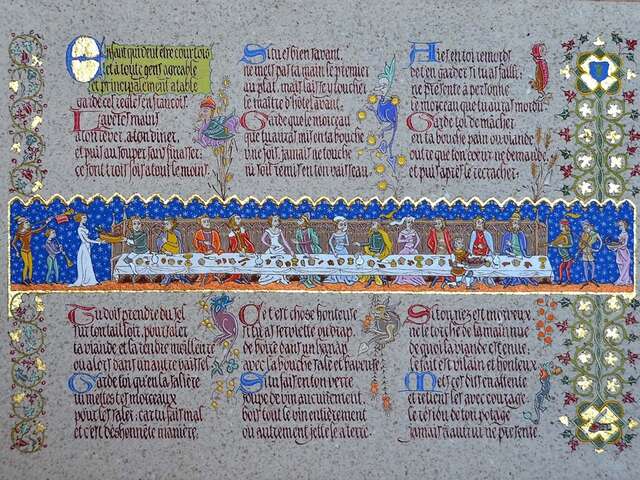 Enfant qui veut être courtois
et à toute gens agréable
et principalement à table
garde ces règles en françois.
Lave tes mains
à ton lever, à ton dîner,
et puis au souper sans finasser:
ce sont trois fois à tout le moins.
Si tu es bien savant,
ne mets pas ta main le premier
au plat, mais laisse y toucher
le maître d'hôtel avant.
Garde que le morceau
que tu auras mis en ta bouche
une fois, jamais ne touche
ni soit remis en ton vaisseau.
Aies en toi remords
de t'en garder si tu as failli;
ne présente à personne
le morceau que tu auras mordu
Garde toi de mâcher
en ta bouche pain ou viande
outre que ton coeur ne demande,
et puis après le recracher.
Tu dois prendre du sel
sur ton tailloir, pour saler
ta viande et la rendre meilleure
ou alors dans un autre vaissel.
Garde toi qu'en la salière
tu mettes tes morceaux
pour les saler; car tu fais mal
et c'est déshonnête manière.
C'est chose honteuse
si tu as serviette ou drap,
de boire dans un hanap
avec la bouche sale et baveuse
Si tu fais en ton verre
soupe de vin aucunement,
bois tout le vin entièrement
ou autrement jette le à terre.
Si ton nez est morveux
ne le torche de la main nue
de quoi la viande est tenue:
le fait est vilain et honteux
Mets ces dits en attente
et retiens les avec courage.
Le résidu de ton potage
jamais à autrui ne présente.